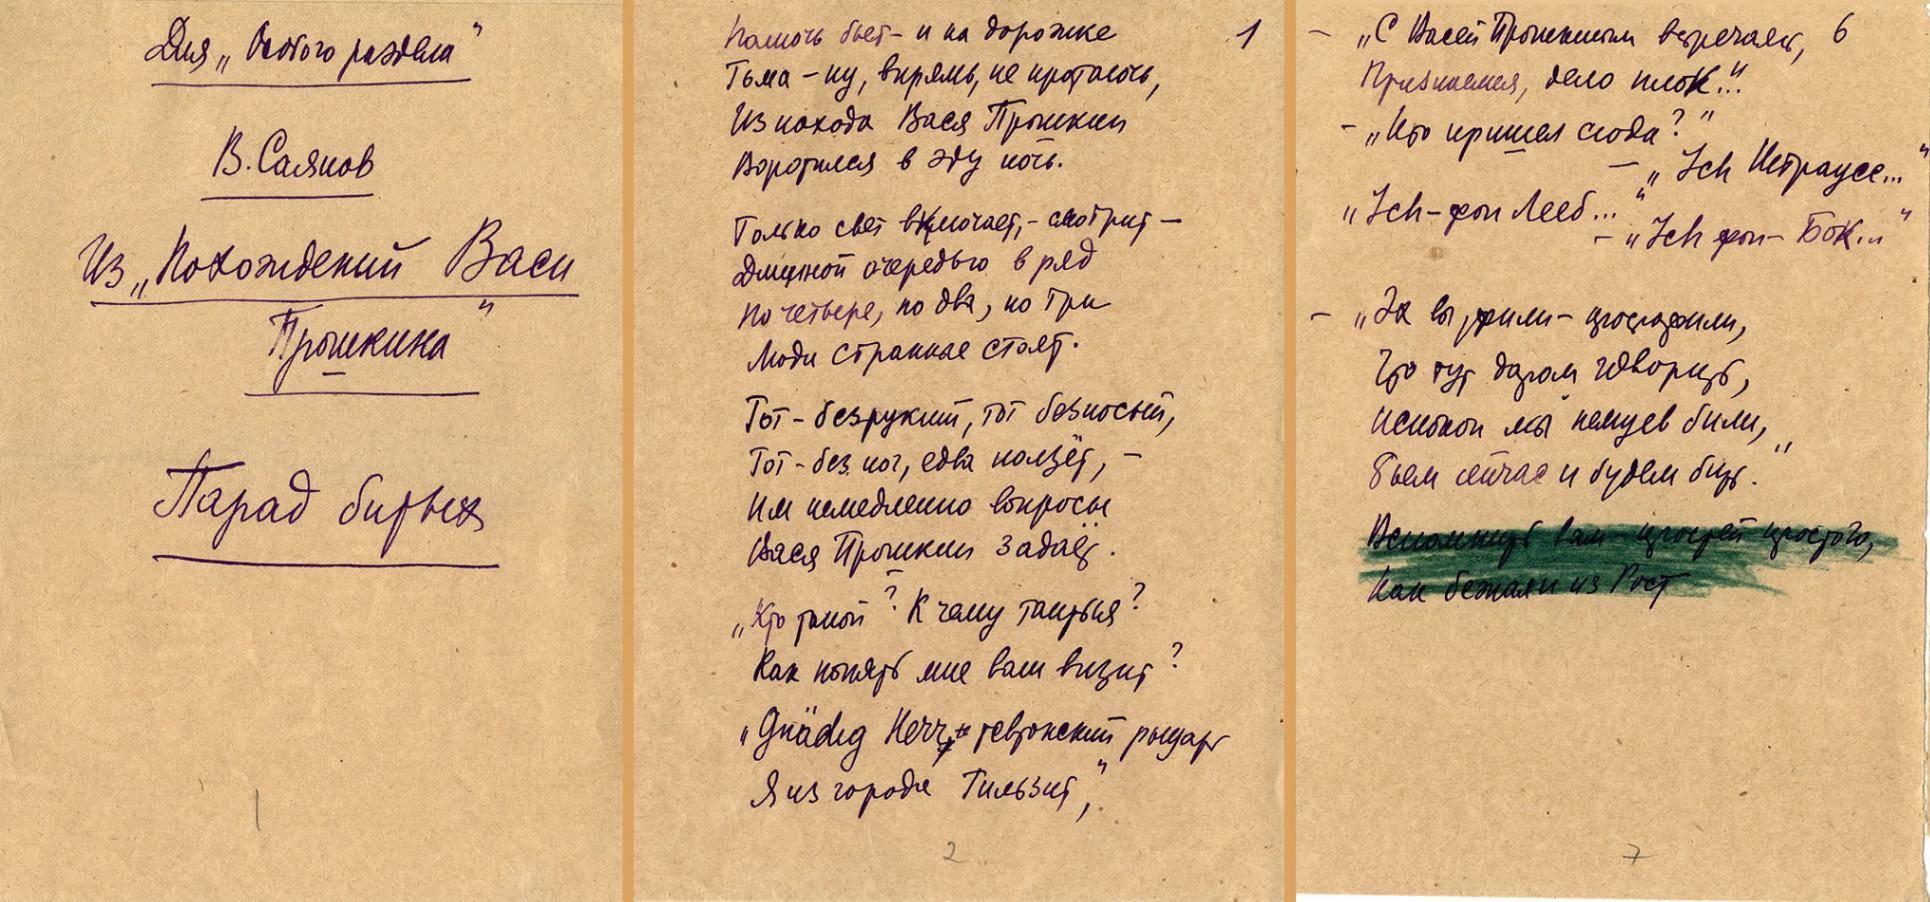 Для „Особого раздела“
В. Саянов
Из „Похождений Васи
Прошкина“
Парад битых
1
Полночь бьет – и на дорожке
Тьма – ну, впрямь, не протолочь,
Из похода Вася Прошкин
Воротился в эту ночь.
Только свет включает, – смотрит –
Длинной очередью в ряд
По четыре, по два, по три
Люди странные стоят.
Тот – безрукий, тот безносый,
Тот – без ног, едва ползёт, –
Им немедленно вопросы
Вася Прошкин задаёт.
„Кто такой? К чему таиться?
Как понять мне ваш визит?
„Gnädig Herr, тевтонский рыцарь
Я из города Тильзит,“
2
– „С Васей Прошкиным встречаясь, 6
Признаемся, дело плох..."
– „Кто пришел сюда?"
– „Ich Штраусс..."
„Ich – фон Лееб..."
– „Ich фон – Бок..."
– „Эх вы, фили – простофили,
Что тут даром говорить,
Испокон мы немцев били,
Бьем сейчас и будем бить."
Вспомнить вам простей простого,
Как бежали из Рост
7